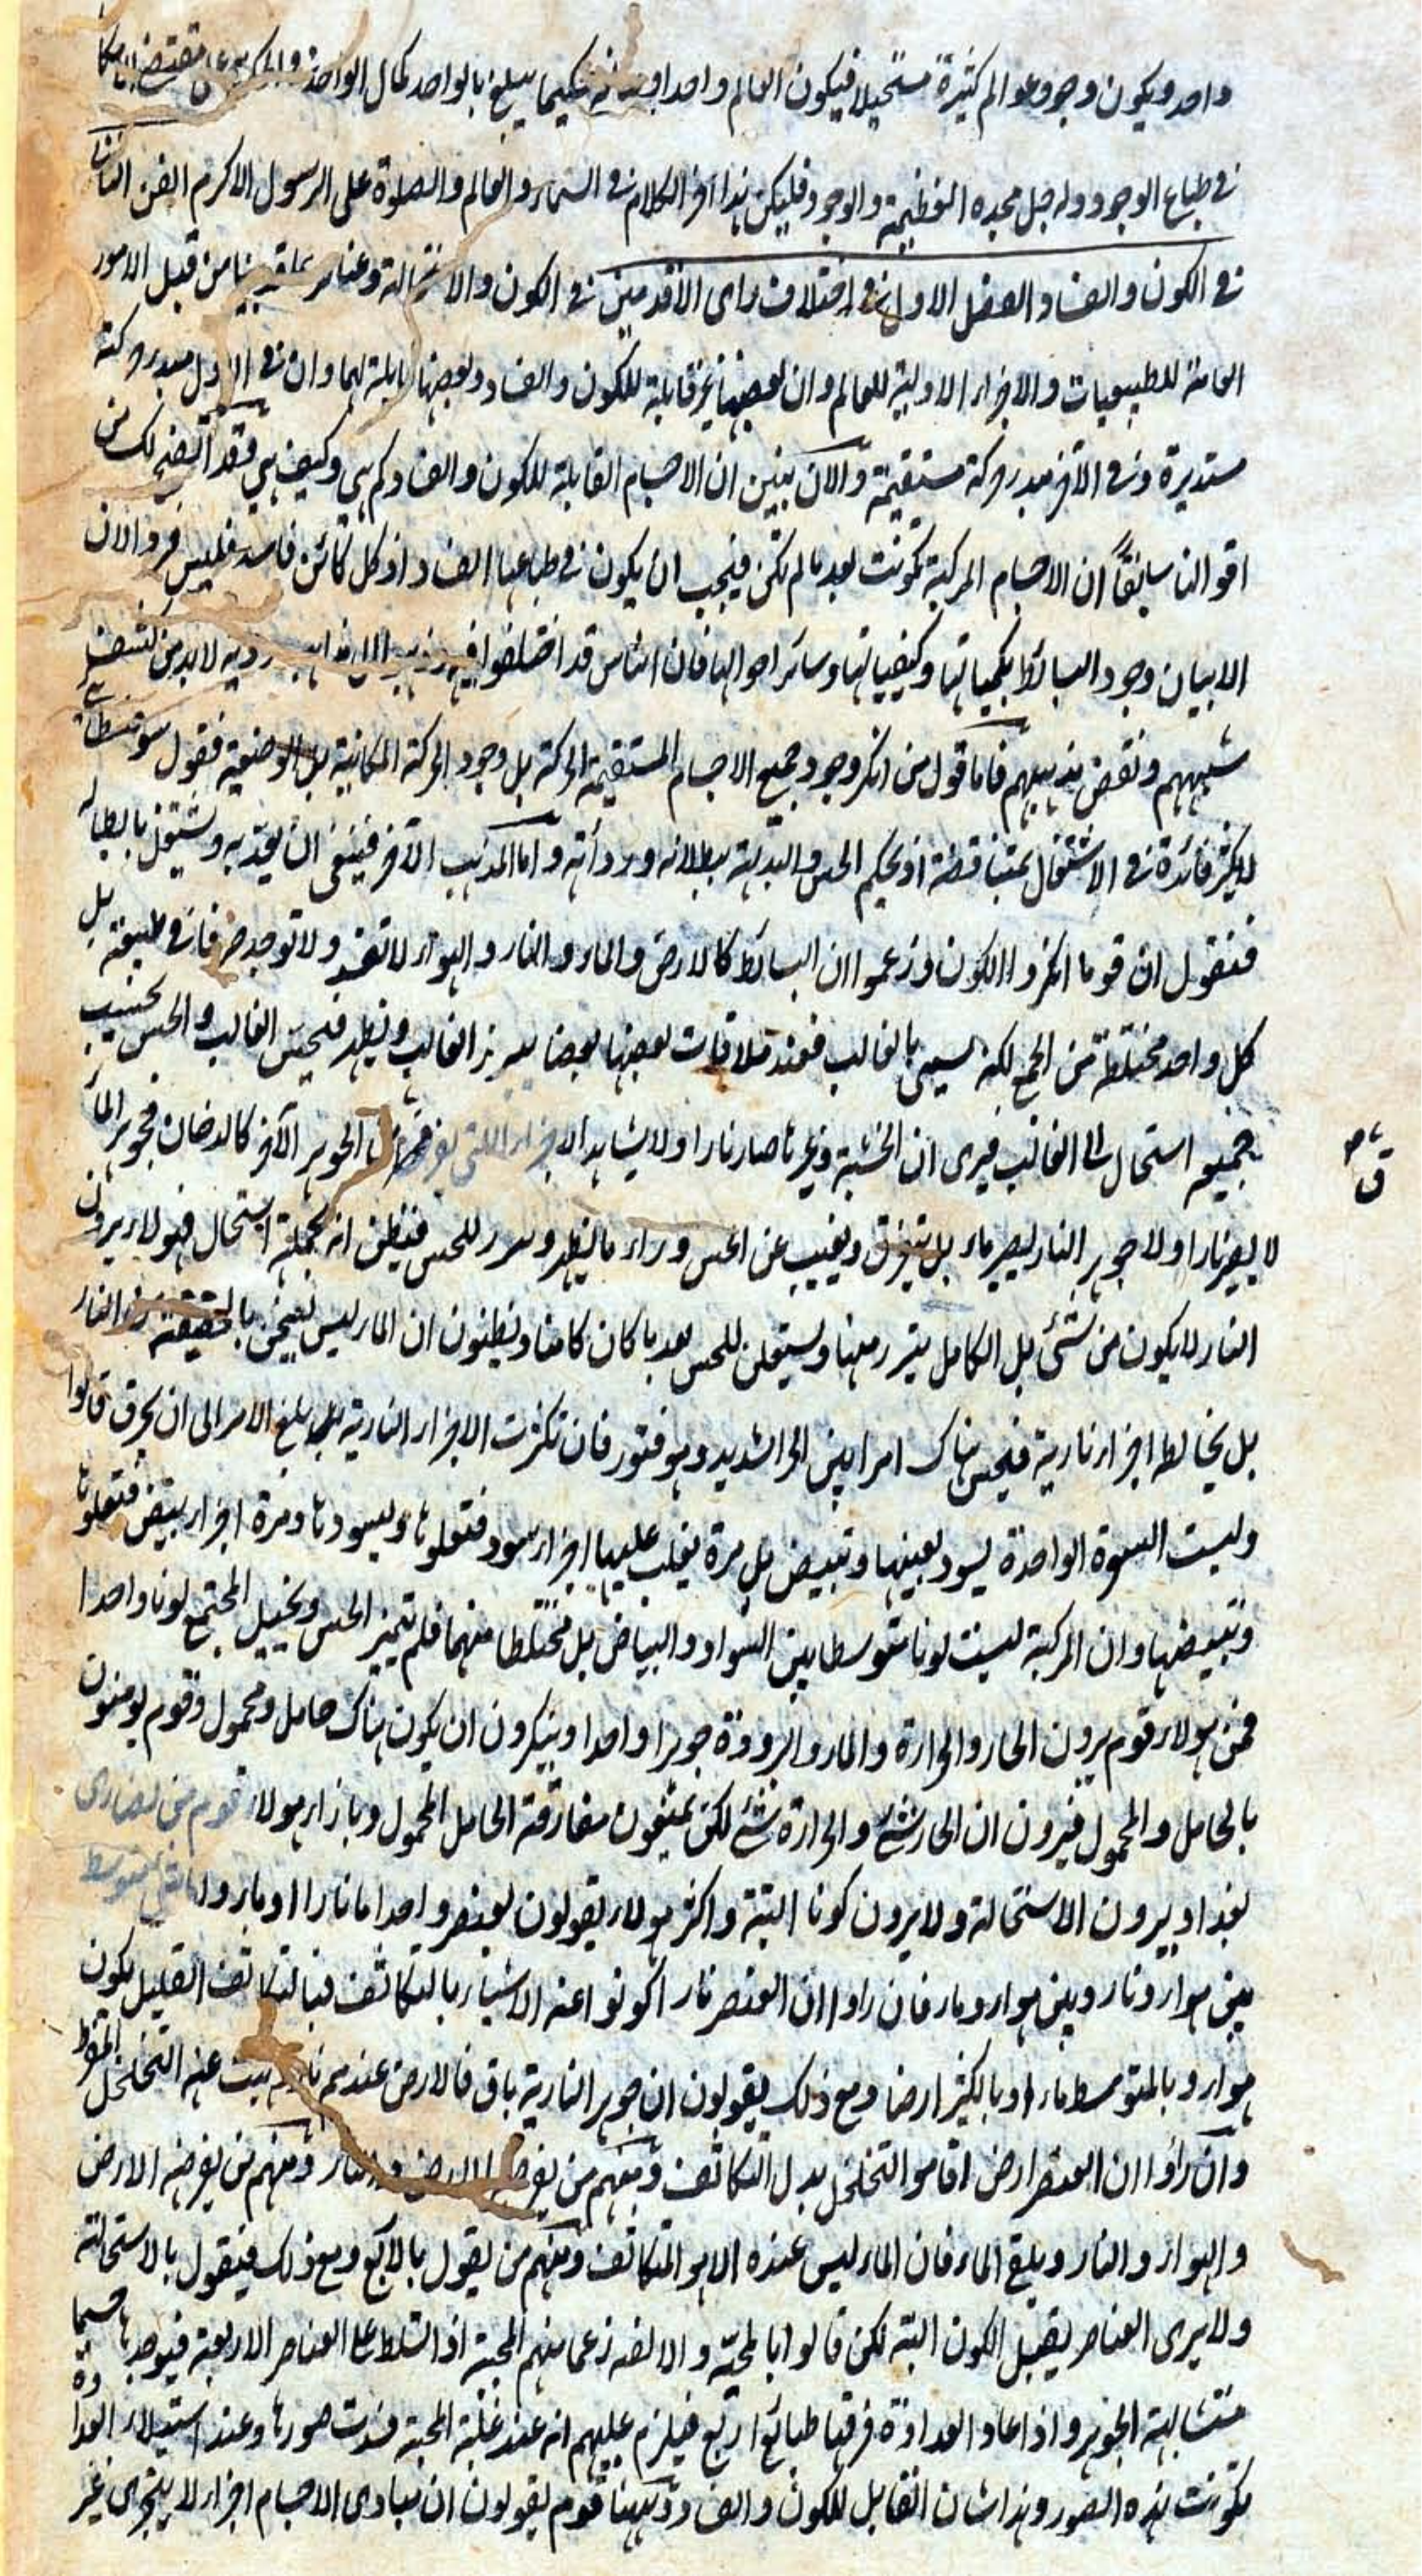 واحد ويكون وجود عوالم كثيرة مستحيلا فيكون العالم واحدا حكيما يبلغ بالواحد كمال الواحد
في طباع الوجود وله جل مجده العظيمة والوجود فليكن هذا آخر الكلام في السماء والعالم والصلوة على الرسول الاكرم الفن الثالث
في الكون والفساد الفصل الاول في اختلاف راى الاقدمين في الكون والاستحالة وعناصر من قبل الامور
العامة للطبيعيات والاجزاء الاولية للعالم وان بعضها غير قابلة للكون والفساد وبعضها قابلة لهما وان في الاول مبدء حركة
مستديرة وفي الآخر مبدء حركة مستقيمة والآن نبين ان الاجسام القابلة للكون والفساد كم هى وكيف هى فقد اتضح لك من
اقوالنا سابقاً ان الاجسام المركبة تكونت بعد ما لم تكن فيجب ان يكون في طباعها الفساد اذ كل كائن فاسد فليس الآن
الا بيان وجود البسائط بكمياتها وكيفياتها وسائر احوالها فان الناس قد اختلفوا فيه لابد من كشف
شبههم ونقض مذهبهم فاما قول من انكر وجود جميع الاجسام المستقيمة الحركة بل وجود الحركة المكانية بل الوضعية فقول
لا يكثر فائدة في الاشتغال بمناقضته اذ يحكم الحس والبديهة ببطلانه وردأته واما المذهب الآخر فينبغى ان يعتد به ويشتغل بابطاله
فنقول ان قوما انكروا الكون وزعموا ان البسائط كالارض والماء والنار والهواء لا تفسد ولا توجد صرفا في طبيعته بل
كل واحد مختلطة من الجمع لكنه يسمى بالغالب فعند ملاقات بعضها بعضا يبرز الغالب ويظهر فيحس الغالب والحس يحسب
جميعه استحال الى الغالب فيرى ان الخشبة وغيرها صار نارا ولا يشاهد الاجزاء التى الجوهر الآخر كالدخان فجوهر الماء
لا يصير نارا ولا جوهر النار يصير ماء بل يتفرق ويغيب عن الحس وراء ما يظهر للحس فيظن انه بجملته استحال فهولاء يرون
النار لا يكون من شئ بل الكامل يبرز منها ويستعلن للحس بعد ما كان كامنا ويظنون ان الماء ليس يسخن بالحقيقة من النار
بل يخالطه اجزاء نارية فيحس هناك امرا بين الحر الشديد وهو فتور فان تكثرت الاجزاء النارية بلغ الامر الى ان يحرق قالوا
وليست الواحدة يسود بعينها وتبيض بل مرة يغلب عليها اجزاء سود فتعلوها ويسودها ومرة اجزاء بيض فتعلوها
وتبيضها وان المركبة ليست لونا متوسطا بين السواد والبياض بل مختلطا منهما فلم يتميز الحس ويخيل المجتمع لونا واحدا
فمن هولاء قوم يرون الحار والحرارة والبارد والبرودة جوهرا واحدا وينكرون ان يكون هناك حامل ومحمول وقوم يومنون
بالحامل والمحمول فيرون ان الحار شئ والحرارة شئ لكن يمنعون مفارقة الحامل المحمول وبازاء هولاء قوم من نصارى
بغداد يرون الاستحالة ولا يرون كونا البتة واكثر هولاء يقولون بعنصر واحد اما نارا او بارد متوسط
بين هواء ونار وبين هواء وماء فان راوا ان العنصر نار اكونوا عنه الاشياء بالتكاثف فبالتكاثف القليل يكون
هواء وبالمتوسط ماء او بالكثير ارضا ومع ذلك يقولون ان جوهر النارية باق فالارض عندهم نار عنه التخلخل المفرط
وان رأوا ان العنصر ارض اقاموا التخلخل بدل التكاثف ومنهم من يفرضه الارض والنار ومنهم من يفرضه الارض
والهواء والنار ويلغى الماء فان الماء ليس عنده الا هو المتكاثف ومنهم من يقول بالاربع ومع ذلك فيقول بالاستحالة
ولا يرى العناصر يقبل الكون البتة لكن قالوا بالمحبة والالفة زعما منهم المحبة اذا تسلط على العناصر الاربعة فيوحدها جسما
متشابهة الجوهر واذا عاد العداوة فرقها طبائع اربع فيلزم عليهم انه عند غلبة المحبة فسدت صورها وعند استيلاء العداوة
تكونت هذه الصور وهذا شان القابل للكون والفساد وههنا قوم يقولون ان مبادى الاجسام اجزاء لا يتجزى غير